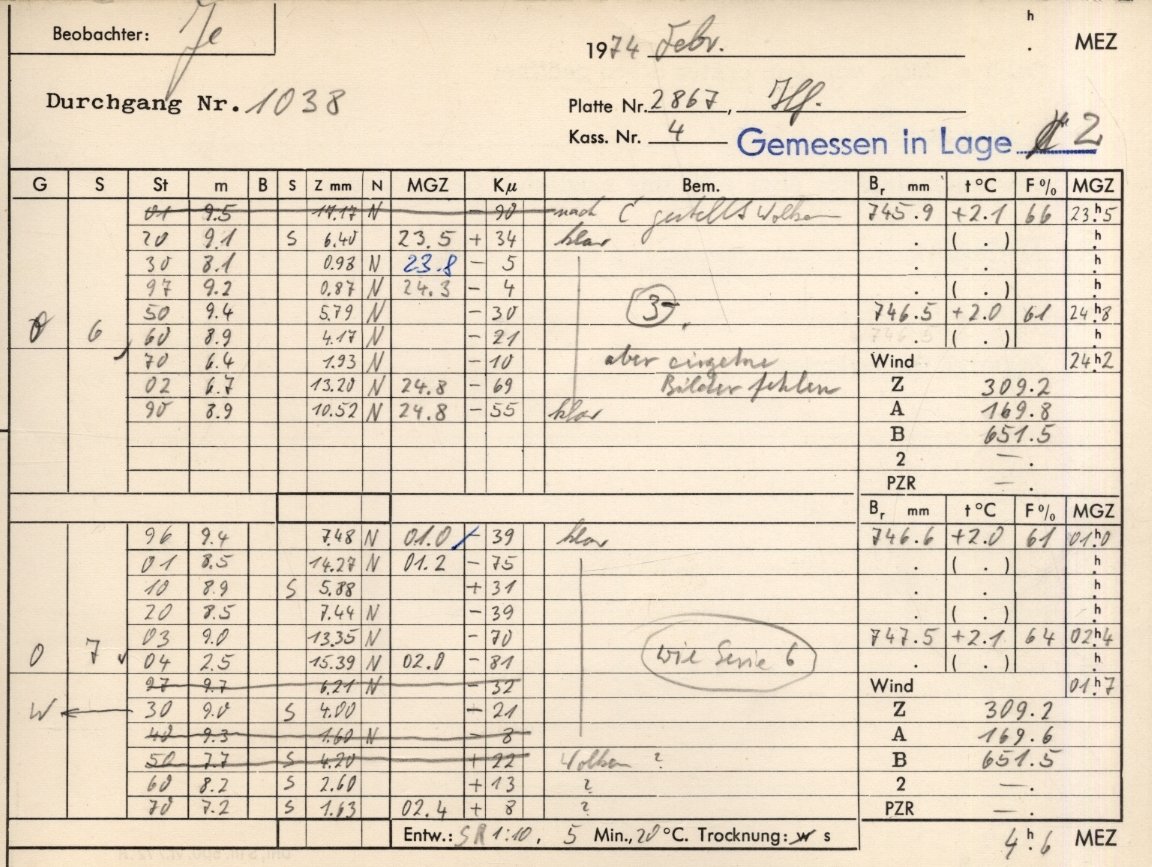 Beobachter: Je
h
1974 Febr. . MEZ
Durchgang Nr. 1038
Platte Nr. 2867,
Kass. Nr. 4 Gemessen in Lage 2
G S St m B S Z mm N MGZ Kμ Bem. Br mm t °C F % MGZ
01 9.5 17.17 N - 90 nach C gestellt Wolken 745.9 +2.1 66 23h.5
20 9.1 S 6.40 23.5 + 34 klar . ( . ) h.
30 8.1 0.98 N 23.8 - 5 . . h.
97 9.2 0.87 N 24.3 - 4 . ( . ) h.
50 9.4 5.79 N - 30 3-. 746.5 +2.0 61 24h.8
0 6 60 8.9 4.17 N - 21 746.5 ( . ) h.
70 6.4 1.93 N - 10 aber einzelne Wind 24h.2
02 6.7 13.20 N 24.8 - 69 Bilder fehlen Z 309.2
90 8.9 10.52 N 24.8 - 55 klar A 169.8
B 651.5
2 — .
PZR — .
Br mm t °C F % MGZ
96 9.4 7.48 N 01.0 - 39 klar 746.6 +2.0 61 01h.0
01 8.5 14.27 N 01.2 - 75 . ( . ) h.
10 8.9 S 5.88 + 31 . . h.
20 8.5 7.44 N - 39 . ( . ) h.
03 9.0 13.35 N - 70 747.5 +2.1 64 02h.4
0 7 04 2.5 15.39 N 02.0 - 81 wie Serie 6 . ( . ) h.
97 9.7 6.21 N - 32 Wind 01h.7
W ← 30 9.0 S 4.00 - 21 Z 309.2
40 9.3 1.60 N - 8 A 169.6
50 7.7 S 4.20 + 22 Wolken ? B 651.5
60 8.2 S 2.60 + 13 ? 2 — .
70 7.2 S 1.63 02.4 + 8 ? PZR — .
Entw.: SR 1:10, 5 Min., 20 °C. Trocknung: w s 4h.6 MEZ